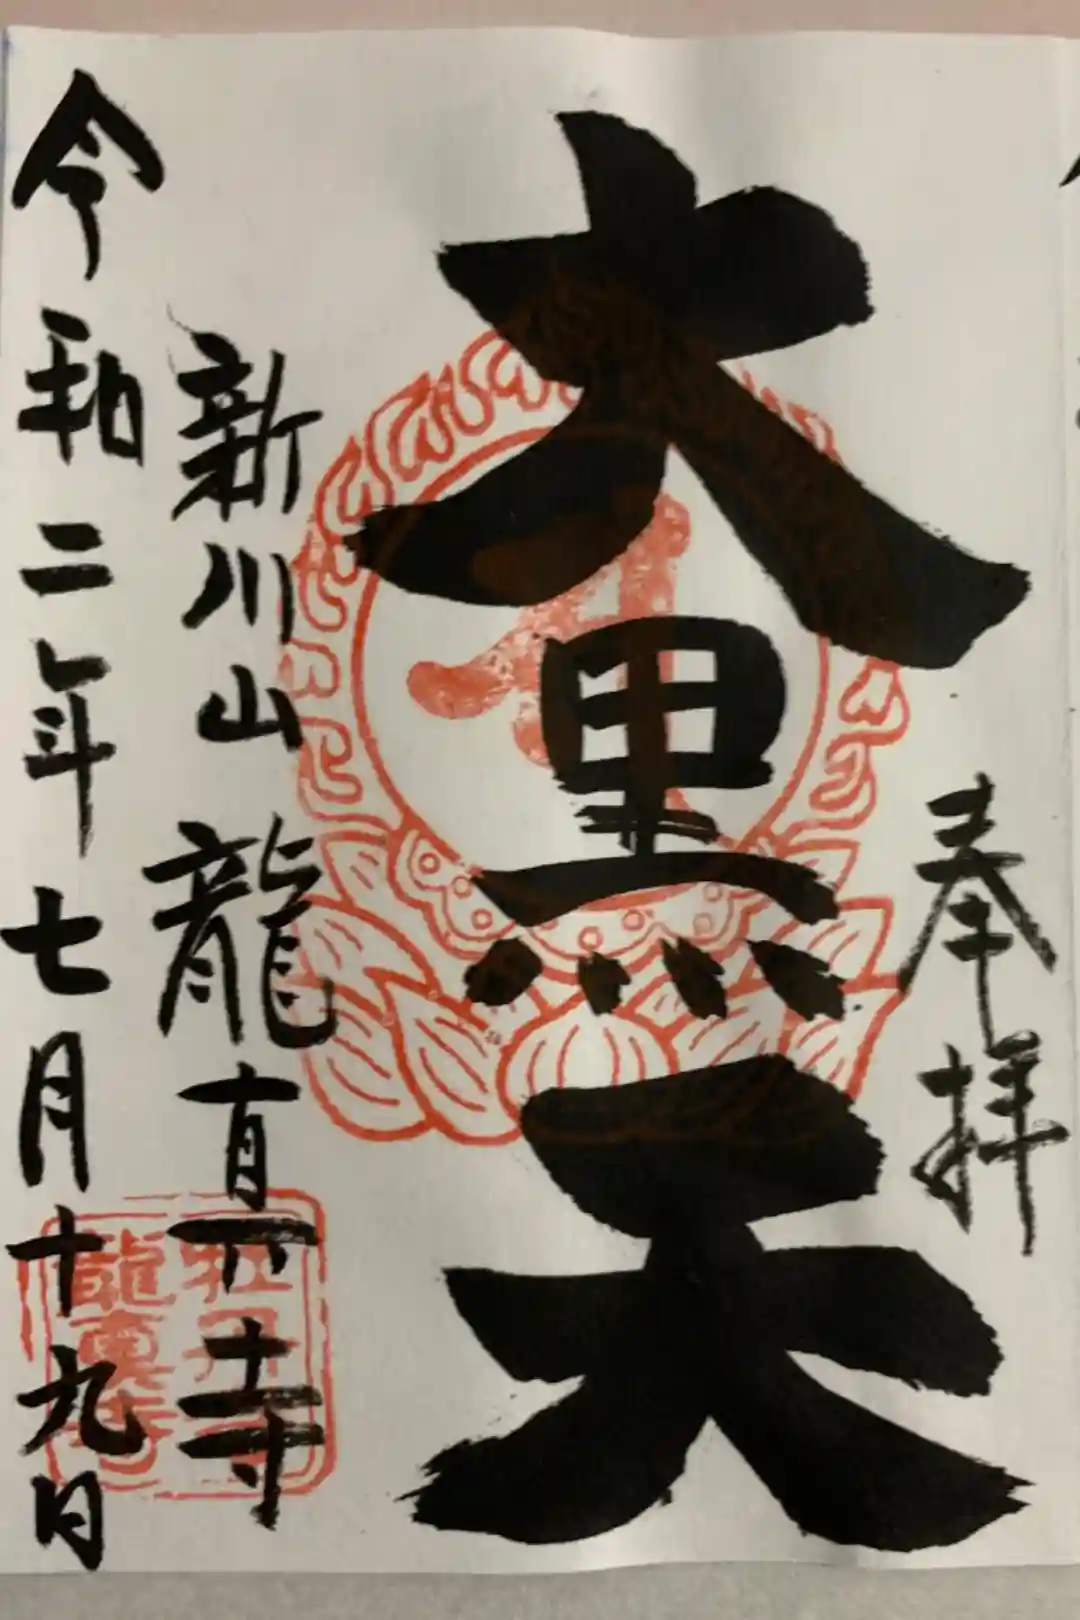 奉拝
大黒天
新川山龍真寺
令和二年七月十九日
牡丹寺
龍真寺